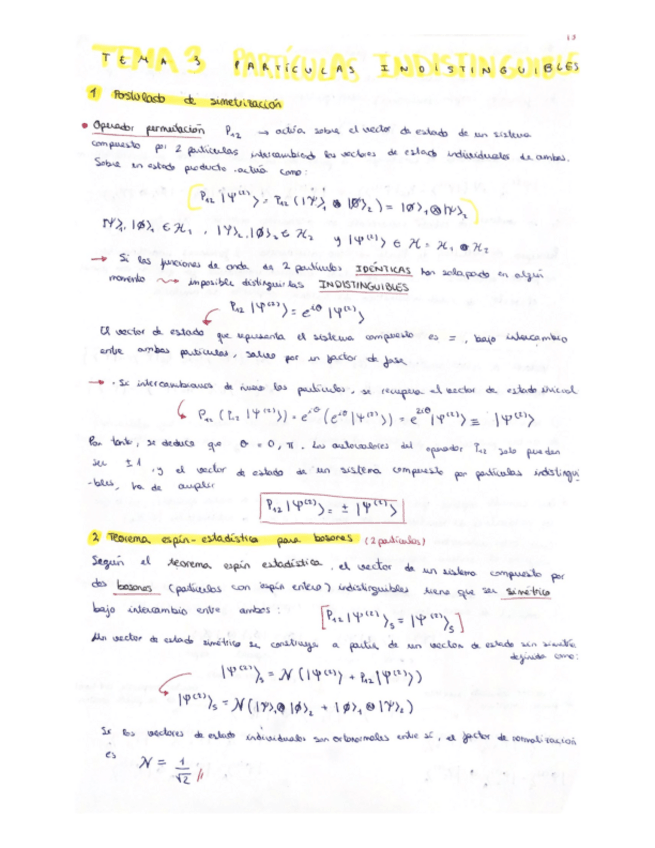 13
TEMA 3 PARTÍCULAS INDISTINGUIBLES
1 Postulado de simetrización
• Operador permutación P₁₂ → actúa sobre el vector de estado de un sistema
compuesto por 2 partículas intercambiando los vectores de estado individuales de ambas.
Sobre un estado producto actúa como:
P₁₂ |Ψ⁽²⁾⟩ = P₁₂ (|Ψ⟩₁ ⊗ |Ø⟩₂) = |Ø⟩₁ ⊗ |Ψ⟩₂
|Ψ⟩₁, |Ø⟩₁ ∈ ℋ₁ , |Ψ⟩₂, |Ø⟩₂ ∈ ℋ₂ y |Ψ⁽²⁾⟩ ∈ ℋ = ℋ₁ ⊗ ℋ₂
→ Si las funciones de onda de 2 partículas IDÉNTICAS han solapado en algún
momento ⇝ imposible distinguirlas INDISTINGUIBLES
P₁₂ |Ψ⁽²⁾⟩ = e^{iθ} |Ψ⁽²⁾⟩
El vector de estado que representa el sistema compuesto es =, bajo intercambio
entre ambas partículas, salvo por un factor de fase
→ · Si intercambiamos de nuevo las partículas, se recupera el vector de estado inicial
P₁₂ (P₁₂ |Ψ⁽²⁾⟩) = e^{iθ} (e^{iθ} |Ψ⁽²⁾⟩) = e^{2iθ} |Ψ⁽²⁾⟩ ≡ |Ψ⁽²⁾⟩
Por tanto, se deduce que θ = 0, π. Los autovalores del operador P₁₂ solo pueden
ser ± 1, y el vector de estado de un sistema compuesto por partículas indistingui
-bles, ha de cumplir
P₁₂ |Ψ⁽²⁾⟩ = ± |Ψ⁽²⁾⟩
2 Teorema espín-estadística para bosones (2 partículas)
Según el teorema espín estadística, el vector de un sistema compuesto por
dos bosones (partículas con espín entero) indistinguibles tiene que ser simétrico
bajo intercambio entre ambos: [P₁₂ |Ψ⁽²⁾⟩ₛ = |Ψ⁽²⁾⟩ₛ]
Un vector de estado simétrico se construye a partir de un vector de estado sin simetría
definida como:
|Ψ⁽²⁾⟩ₛ = N (|Ψ⁽²⁾⟩ + P₁₂ |Ψ⁽²⁾⟩)
|Ψ⁽²⁾⟩ₛ = N (|Ψ⟩₁ ⊗ |Ø⟩₂ + |Ø⟩₁ ⊗ |Ψ⟩₂)
Si los vectores de estado individuales son ortonormales entre sí, el factor de normalización
es N = 1/√2 //